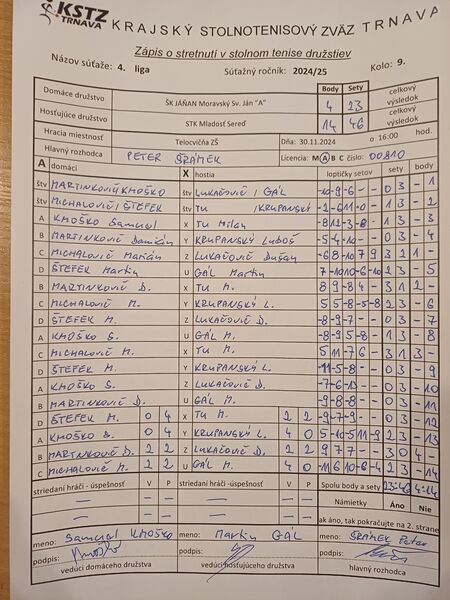 KSTZ TRNAVA KRAJSKÝ STOLNOTENISOVÝ ZVÄZ TRNAVA
Zápis o stretnutí v stolnom tenise družstiev
Názov súťaže: 4. liga Súťažný ročník: 2024/25 Kolo: 9.
Body Sety
Domáce družstvo ŠK JÁŇAN Moravský Sv. Ján "A" 4 23 celkový výsledok
Hosťujúce družstvo STK Mladosť Sereď 14 46 celkový výsledok
Hracia miestnosť Telocvičňa ZŠ Dňa: 30.11.2024 o 16:00 hod.
Hlavný rozhodca PETER ŠRÁMEK Licencia: M A B C číslo: 00810
A domáci X hostia loptičky sety sety body
štv MARTINKOVIČ/KHOŠKO štv LUKAČOVIČ / GÁL -10-9-6- - 03 - 1
štv MICHALOVIČ / ŠTEFEK štv TU /KRUPANSKÝ 13 - 2
A KHOŠKO Samuel X TU Milan -8 12-3-8- 13 - 3
B MARTINKOVIČ Damián Y KRUPANSKÝ Ľuboš -5-4-10- - 03 - 4
C MICHALOVIČ Marián Z LUKAČOVIČ Dušan -6 8-10 7 9 32 1 -
D ŠTEFEK Martin U GÁL Martin 7-10 10-6-10 23 - 5
B MARTINKOVIČ D. X TU M. 8 9-8 4 - 31 2 -
C MICHALOVIČ M. Y KRUPANSKÝ L. 5 5-8-5-8 23 - 6
D ŠTEFEK M. Z LUKAČOVIČ D. -8-9-7- - 03 - 7
A KHOŠKO S. U GÁL M. -8-9 5-8- 13 - 8
C MICHALOVIČ M. X TU M. 5 11-7 6 - 31 3 -
D ŠTEFEK M. Y KRUPANSKÝ L. -11-5-8- - 03 - 9
A KHOŠKO S. Z LUKAČOVIČ D. -7-6-13- - 03 - 10
B MARTINKOVIČ D. U GÁL M. -9-8-8- - 03 - 11
D ŠTEFEK M. 0 4 X TU M. 2 2 -9-7-9- - 03 - 12
A KHOŠKO S. 0 4 Y KRUPANSKÝ L. 4 0 5-10-5 11-9 23 - 13
B MARTINKOVIČ D. 2 2 Z LUKAČOVIČ D. 2 2 9 7 7 - - 30 4 -
C MICHALOVIČ M. 2 2 U GÁL M. 4 0 -11 6 10-6-4 23 - 14
striedaní hráči - úspešnosť V P striedaní hráči - úspešnosť V P Spolu body a sety 23:46 4:14
Námietky Áno Nie
ak áno, tak pokračujte na 2. strane
meno: Samuel KHOŠKO meno: Martin GÁL meno: ŠRÁMEK Peter
podpis: podpis: podpis:
vedúci domáceho družstva vedúci hosťujúceho družstva hlavný rozhodca